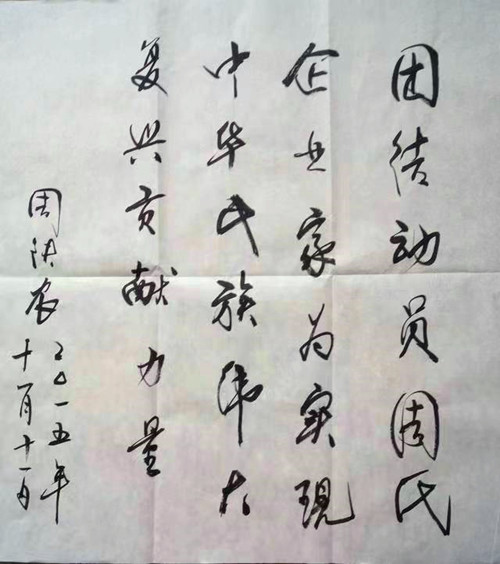 团结动员周氏
企业家为实现
中华民族伟大
复兴贡献力量
周铁农
二〇一五年
十一月十一日